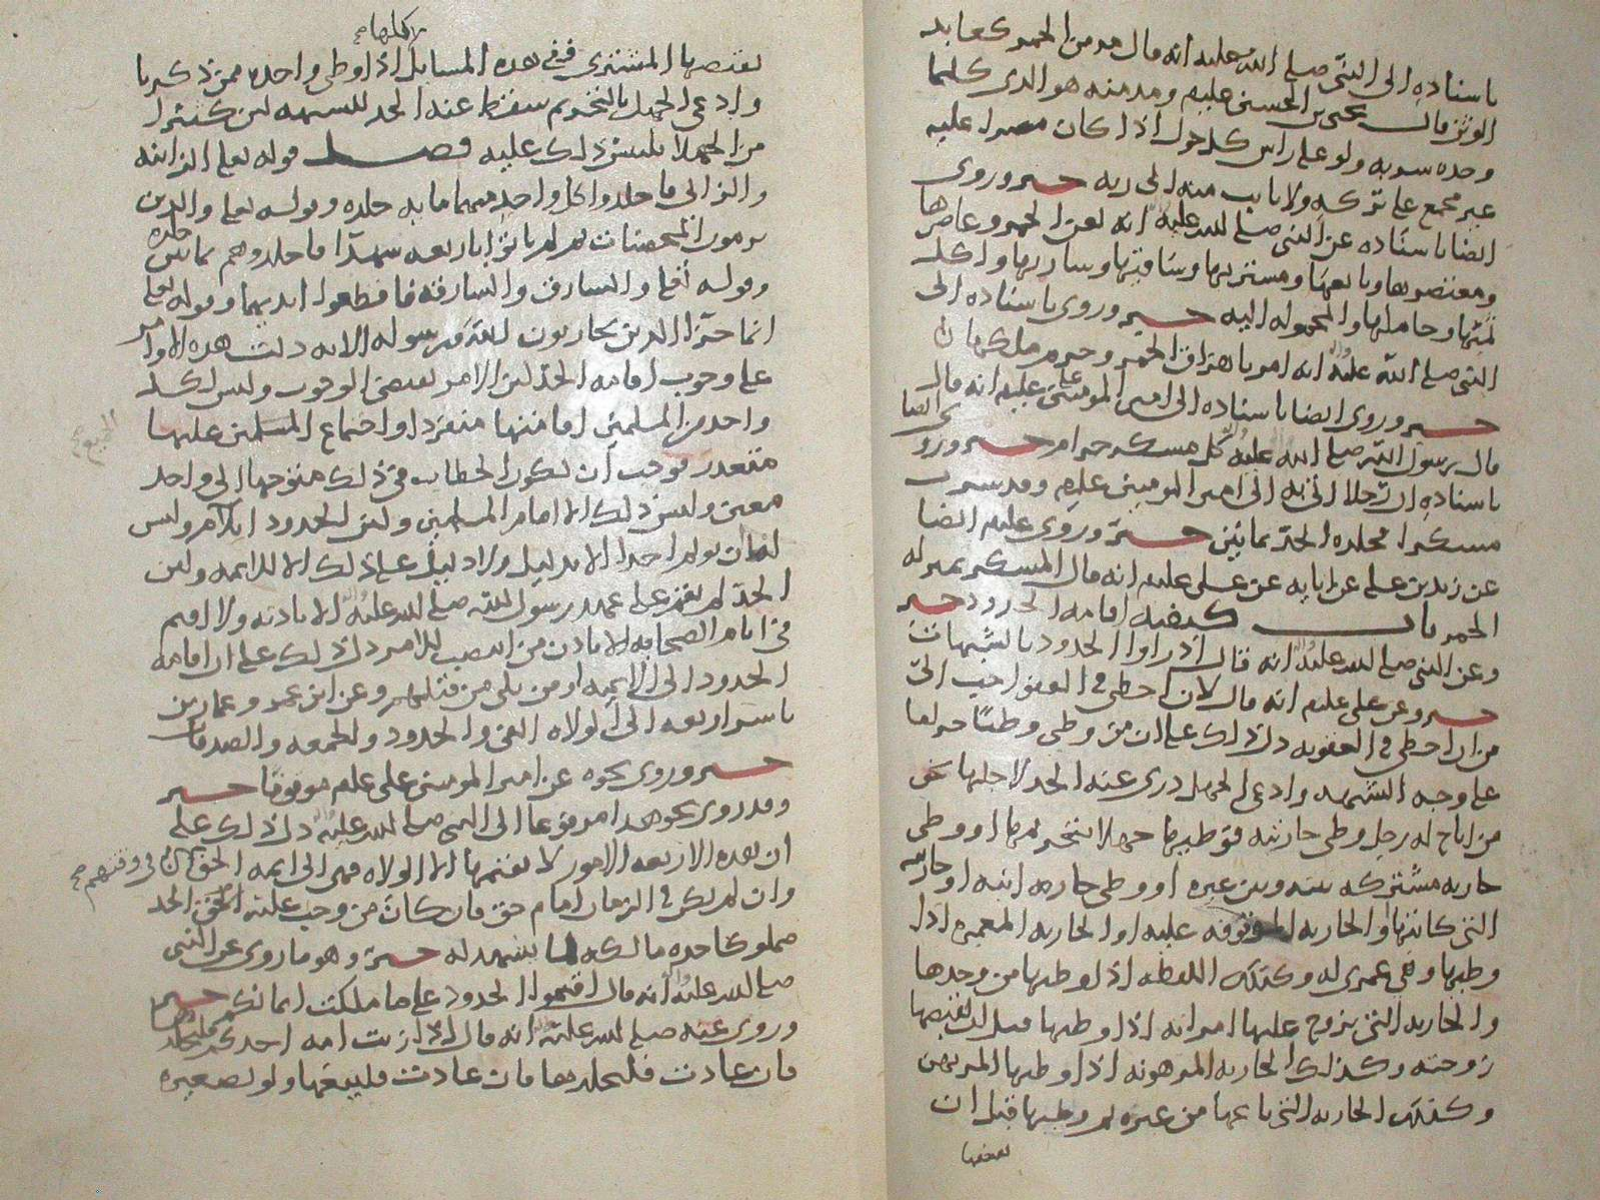 باسناده الى النبي صلى الله عليه انه قال مدمن الخمر كعابد
الوثن قال يحيى بن الحسين عليهم ومدمنه هو الذي كلما
وجده شربه ولو على راس كل حول اذا كان مصرا عليه
غير مجمع على تركه ولا تايب منه الى ربه خبر وروى
ايضا باسناده عن النبي صلى الله عليه انه لعن الخمر وعاصرها
ومعتصرها وبايعها ومشتريها وساقيها وشاربها واكل
ثمنها وحاملها والمحموله اليه خبر وروى باسناده الى
النبي صلى الله عليه انه امر باهراق الخمر وحرم ملكها
خبر وروى ايضا باسناده الى امير المومنين علي عليلم انه قال
قال رسول الله صلى الله عليه كل مسكر حرام خبر وروى ايضا
باسناده ان رجلا اتي به الى امير المومنين عليلم وقد شرب
مسكرا فجلده الحد ثمانين خبر وروى عليلم ايضا
عن زيد بن علي عن ابايه عن علي عليلم انه قال المسكر بمنزله
الخمر باب كيفيه اقامه الحدود خبر
وعن النبي صلى الله عليه انه قال ادراوا الحدود بالشبهات
خبر وعن علي عليلم انه قال لان اخطي في العفو احب الي
من ان اخطي في العقوبه دل ذلك على ان من وطى وطئا حراما
على وجه الشبهه وادعى الجهل دري عنه الحد لاجلها نحو
من اباح له رجل وطى جاريته فوطيها جهلا بتحريمها او وطى
جاريه مشتركه بينه وبين غيره او وطى جاريه ابنه او جاريته
التي كاتبها او الجاريه الموقوفه عليه او الجاريه المعمره اذا
وطيها وهي عمرى له وكذلك اللقطه اذا وطيها من وجدها
والجاريه التي تزوج عليها امراته اذا وطيها قبل ان تقبضها
زوجته وكذلك الجاريه المرهونه اذا وطيها المرتهن
وكذلك الجاريه التي باعها من غيره ثم وطيها قبل ان
يقبضها
يقبضها المشتري ففي هذه المسايل اذا وطى واحده ممن ذكرنا
وادعى الجهل بالتحريم سقط عنه الحد للشبهه لان كثيرا
من الجهلا يلتبس ذلك عليه فصل قوله تعالى الزانيه
والزاني فاجلدوا كل واحد منهما مايه جلده وقوله تعالى والذين
يرمون المحصنات ثم لم ياتوا باربعه شهدآ فاجلدوهم ثمانين جلده
وقوله تعالى والسارق والسارقه فاقطعوا ايديهما وقوله تعالى
انما جزآ الذين يحاربون الله ورسوله الايه دلت هذه الاوامر
على وجوب اقامه الحد لان الامر يقتضي الوجوب وليس لكل
واحد من المسلمين اقامتها منفردا واجتماع المسلمين عليها
متعذر فوجب ان يكون الخطاب في ذلك متوجها الى واحد
معين وليس ذلك الا امام المسلمين ولان الحدود ايلام وليس
لنا ان نولم احدا الا بدليل ولا دليل على ذلك الا للايمه ولان
الحد لم يقم على عهد رسول الله صلى الله عليه الا باذنه ولا اقيم
في ايام الصحابه الا باذن من انتصب للامر دل ذلك على ان اقامه
الحدود الى الايمه او من يلي من قبلهم وعن ابن عمر وعمار بن
ياسر اربعه الى الولاه الفي والحدود والجمعه والصدقات
خبر وروى نحوه عن امير المومنين علي عليلم موقوفا خبر
وقد روى نحو هذا مرفوعا الى النبي صلى الله عليه دل ذلك على
ان هذه الاربعه الامور لا يقيمها الا الولاه فهي الى ايمه الحق في وقتهم
وان لم يكن في الزمان امام حق فان كان من وجب عليه الحد
مملوكا حده مالكه لما يشهد له خبر وهو ما روي عن النبي
صلى الله عليه انه قال اقيموا الحدود على ما ملكت ايمانكم خبر
وروى عنه صلى الله عليه انه قال اذا زنت امه احدكم فليجلدها
فان عادت فليجلدها فان عادت فليبعها ولو بضفير